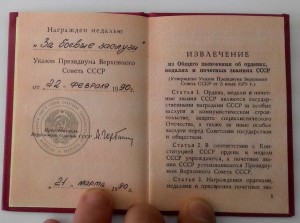 Награжден медалью
"За боевые заслуги"
Указом Президиума Верховного
Совета СССР
от „22" февраля 1980г.
„21" марта 1980г.
ИЗВЛЕЧЕНИЕ
из Общего положения об орденах,
медалях и почетных званиях СССР
(Утверждено Указом Президиума Верховного
Совета СССР от 3 июля 1979 г.)
Статья 1. Ордена, медали и почет-
ные звания СССР являются государст-
венными наградами СССР за особые
заслуги в коммунистическом строи-
тельстве, защите социалистического
Отечества, а также за иные особые
заслуги перед Советским государством
и обществом.
Статья 2. В соответствии с Консти-
туцией СССР ордена и медали СССР
учреждаются, а почетные звания СССР
устанавливаются Президиумом
Верховного Совета СССР.
Статья 3. Награждения орденами,
медалями и присвоение почетных зва-